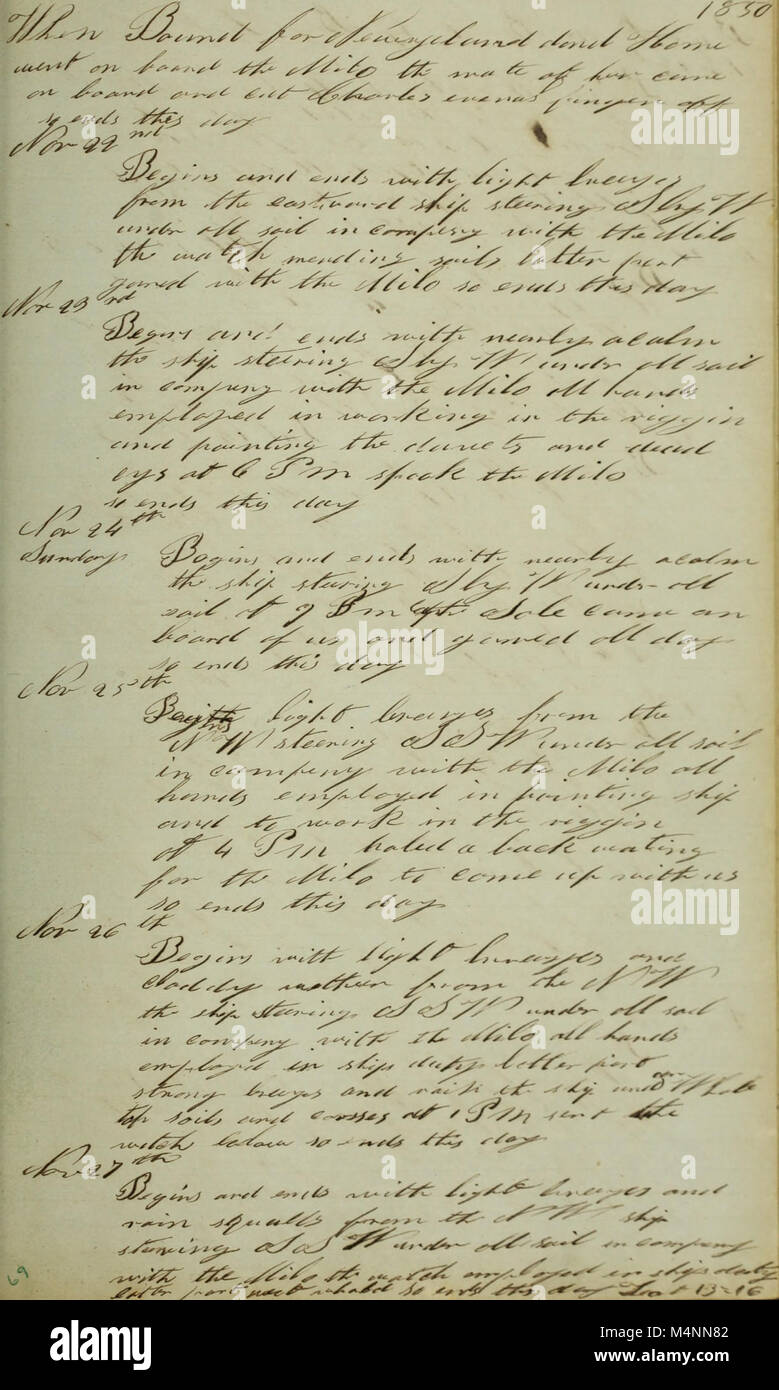 1850
When Bound for Newzeland and Home
went on board the Milo the mate of her came
on board and cut Charles evans finger off
so ends this day
Nov 22nd
Begins and ends with light breezes
from the eastward ship steering S by W
under all sail in company with the Milo
the watch mending sails latter part
gamed with the Milo so ends this day
Nov 23rd
Begins and ends with nearly acalm
the ship steering S by W under all sail
in company with the Milo all hands
employed in working in the riggin
and painting the davets and dead
eys at 6 P m spook the Milo
so ends this day
Nov 24th
Sunday Begins and ends with nearly acalm
the ship steering S by W under all
sail at 9 came on
board of us and gamed all day
so ends this day
Nov 25th
Begins light breezes from the
N W steering S S W under all sail
in company with the Milo all
hands employed in painting ship
and to work in the riggin
at 4 P m haled a back wating
for the Milo to come up with us
so ends this day
Nov 26th
Begins with light breezes and
from the N W
the ship steering S S W under all sail
in company with the Milo all hands
employed in ships duty latter part
strong breezes and the ship under
top sails and corses at 1 P m sent the
watch below so ends this day
Nov 27th
Begins and ends with light breezes and
rain squalls from the N W ship
stearing S S W under all sail in company
with the Milo the watch employed in ships duty
latter part so ends this day Lat 13-16
69
alamy
Image ID: M4NN82
www.alamy.com